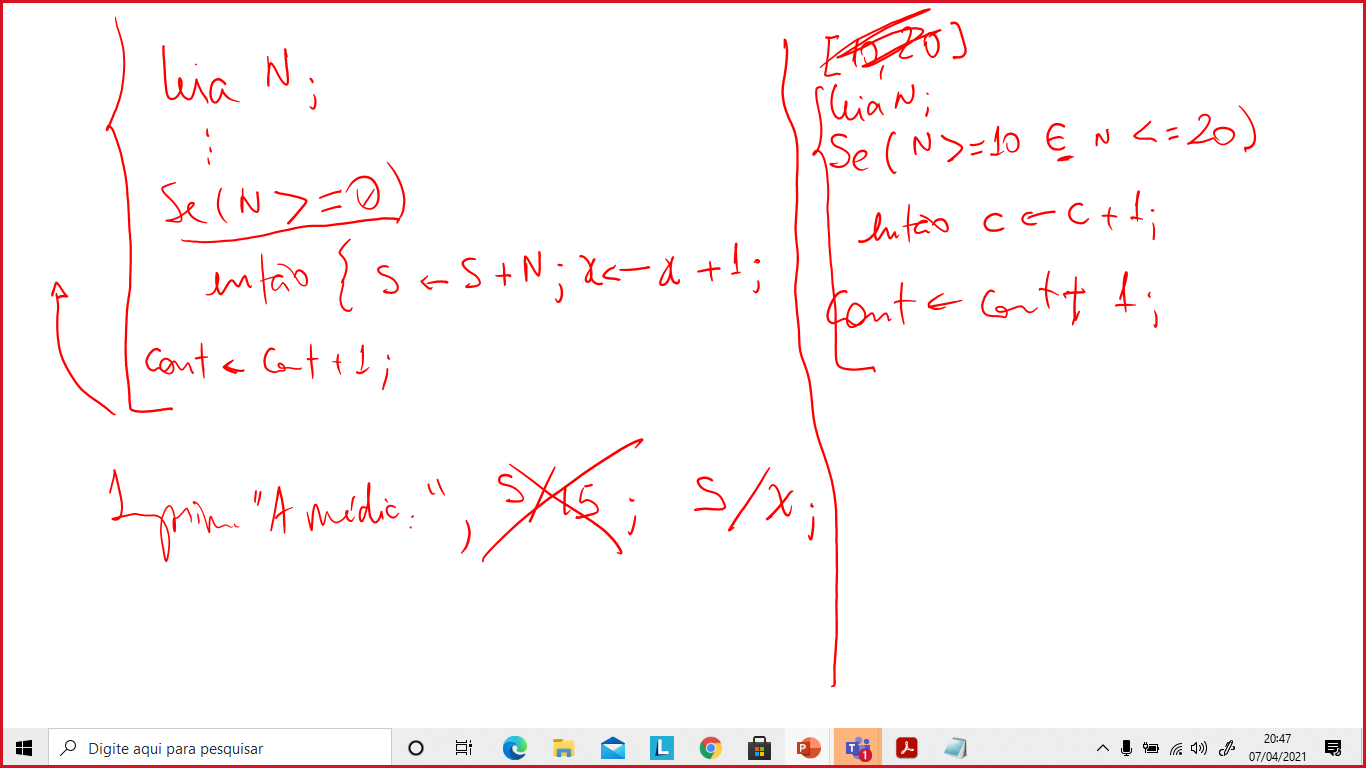 leia N;
:
Se (N >= 0)
então { S ← S + N; x ← x + 1;
cont ← cont + 1;
"A média:", S/15; S/x;
[10, 20]
leia N;
Se (N >= 10 E N <= 20)
então c ← c + 1;
cont ← cont + 1;
Digite aqui para pesquisar
L
1
20:47
07/04/2021